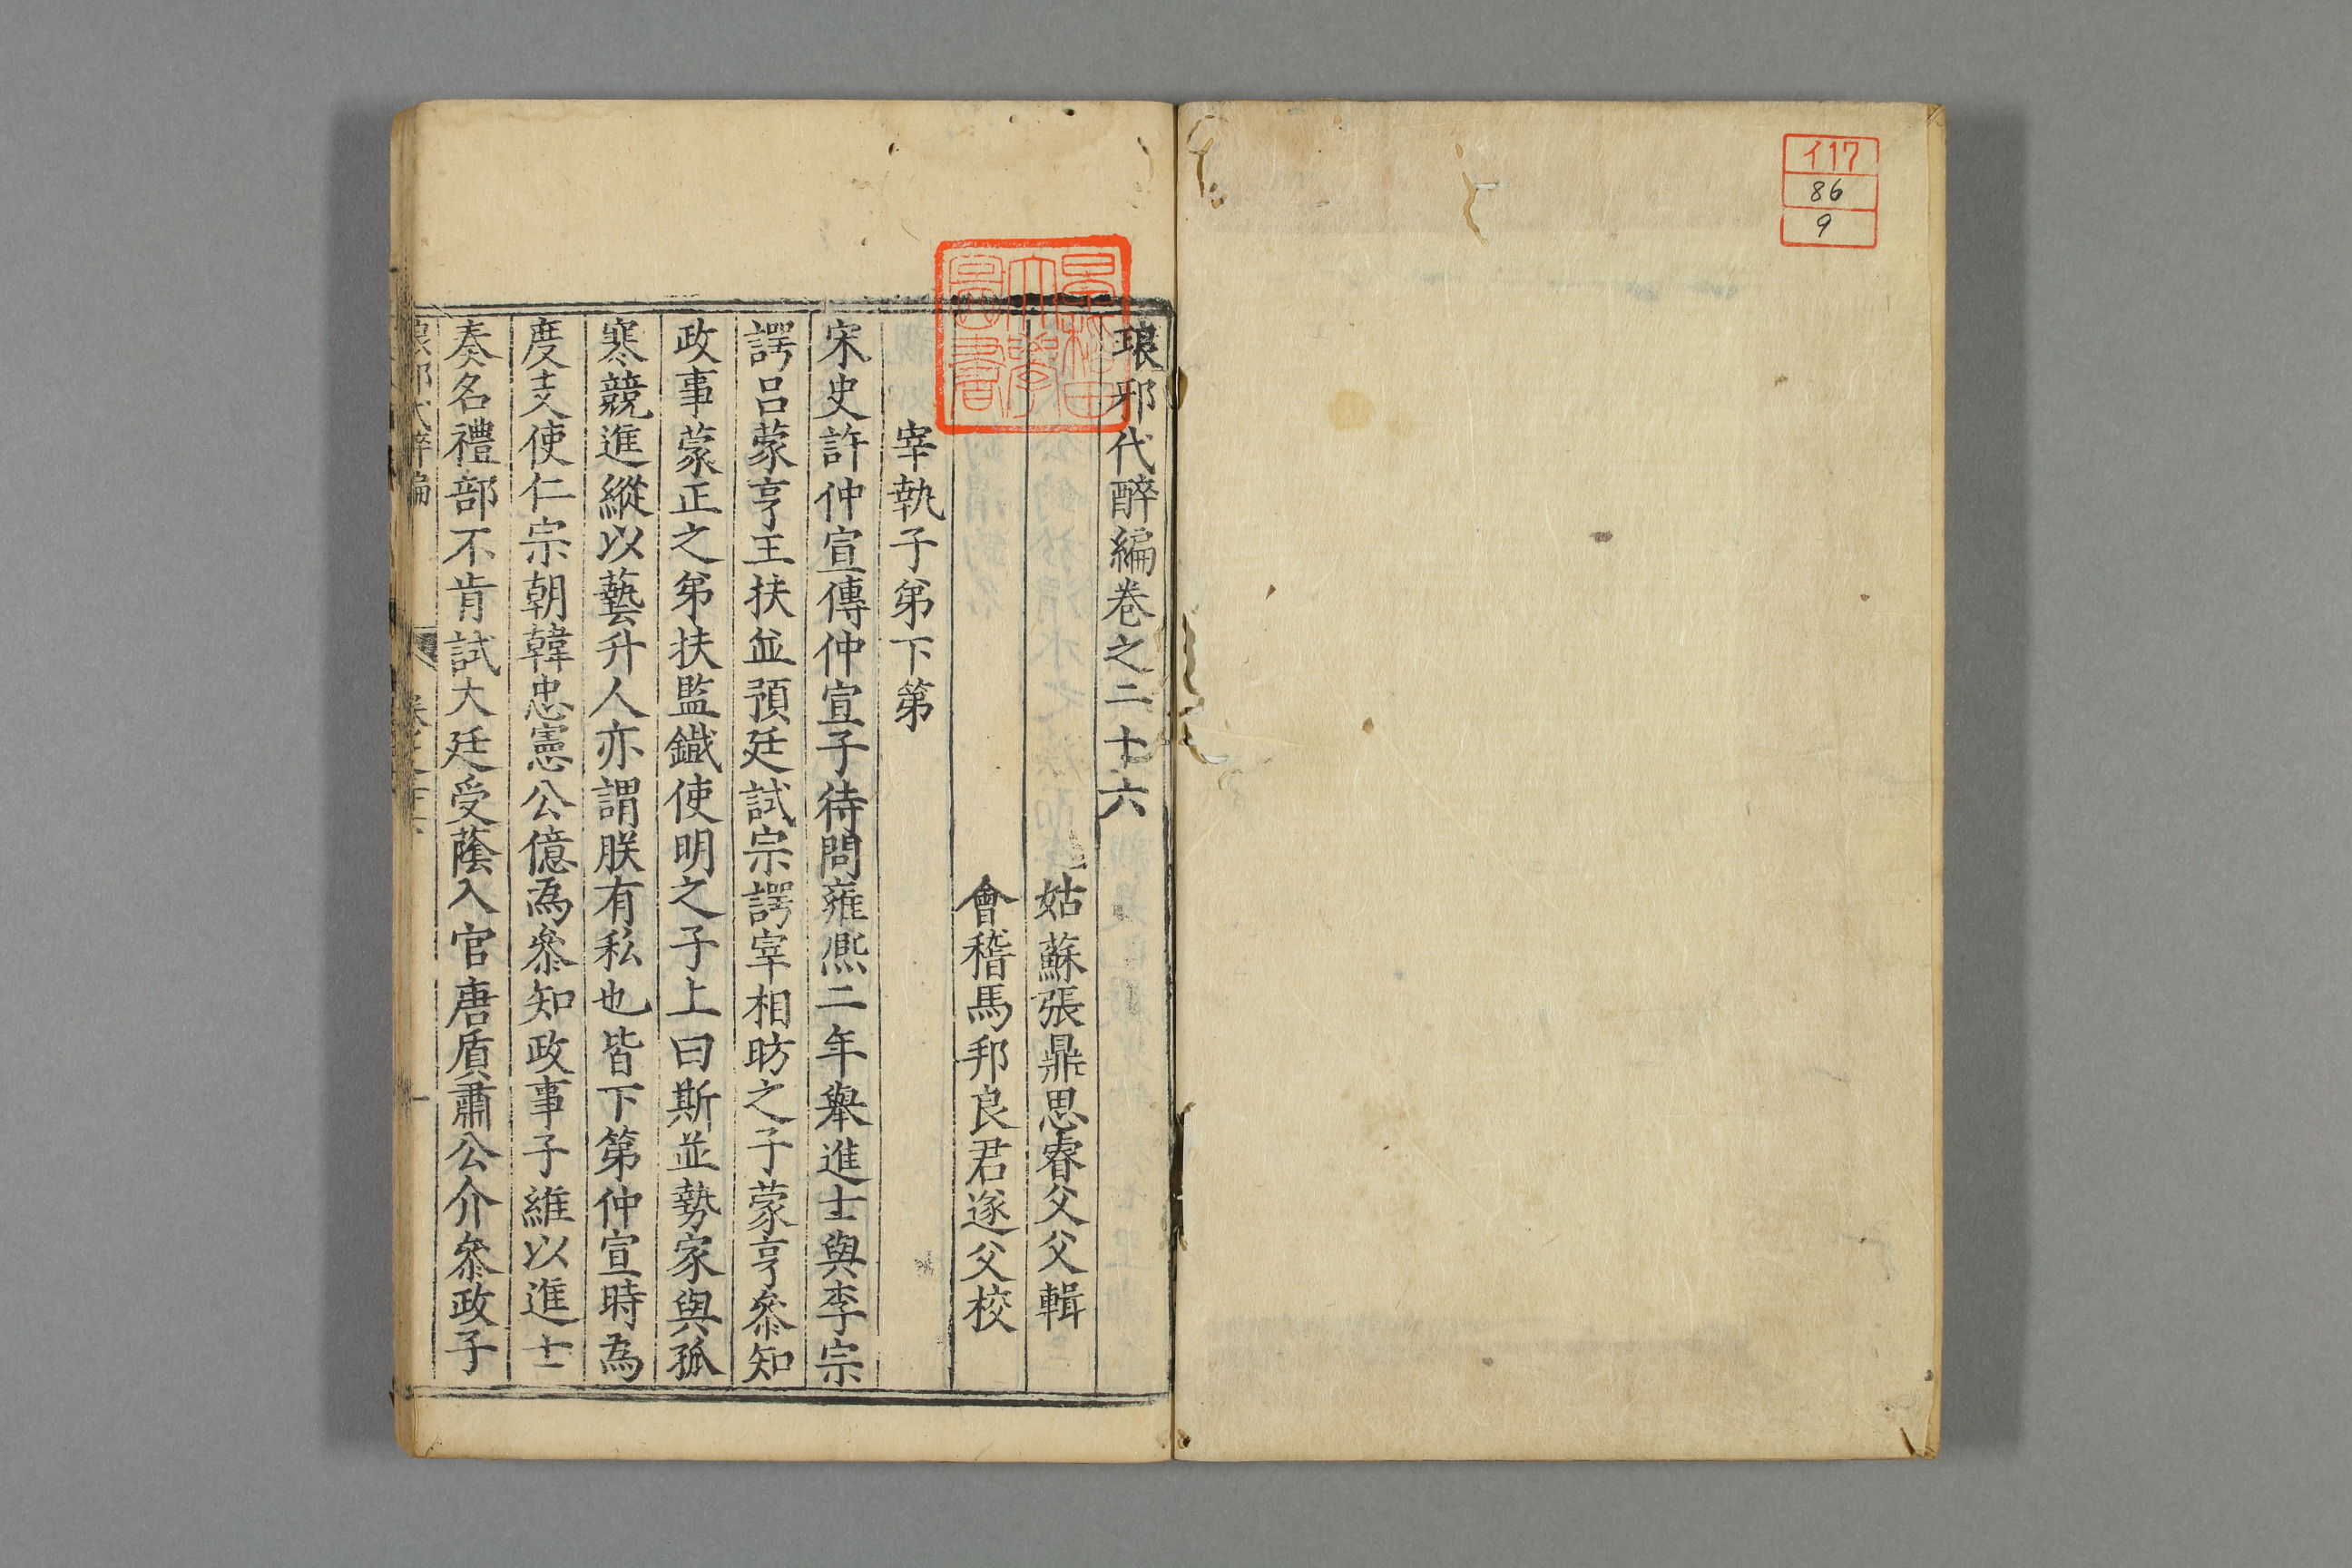 イ17
86
9
琅邪代醉編卷之二十六
姑蘇張鼎思睿父父輯
會稽馬邦良君遂父校
宰執子弟下第
宋史許仲宣傳仲宣子待問雍熈二年舉進士與李宗
諤呂蒙亨王扶並預廷試宗諤宰相昉之子蒙亨叅知
政事蒙正之弟扶監鐵使明之子上曰斯並勢家與孤
寒競進縱以藝升人亦謂朕有私也皆下第仲宣時為
度支使仁宗朝韓忠憲公億為叅知政事子維以進士
奏名禮部不肯試大廷受蔭入官唐質肅公介叅政子
早稻田大學圖書